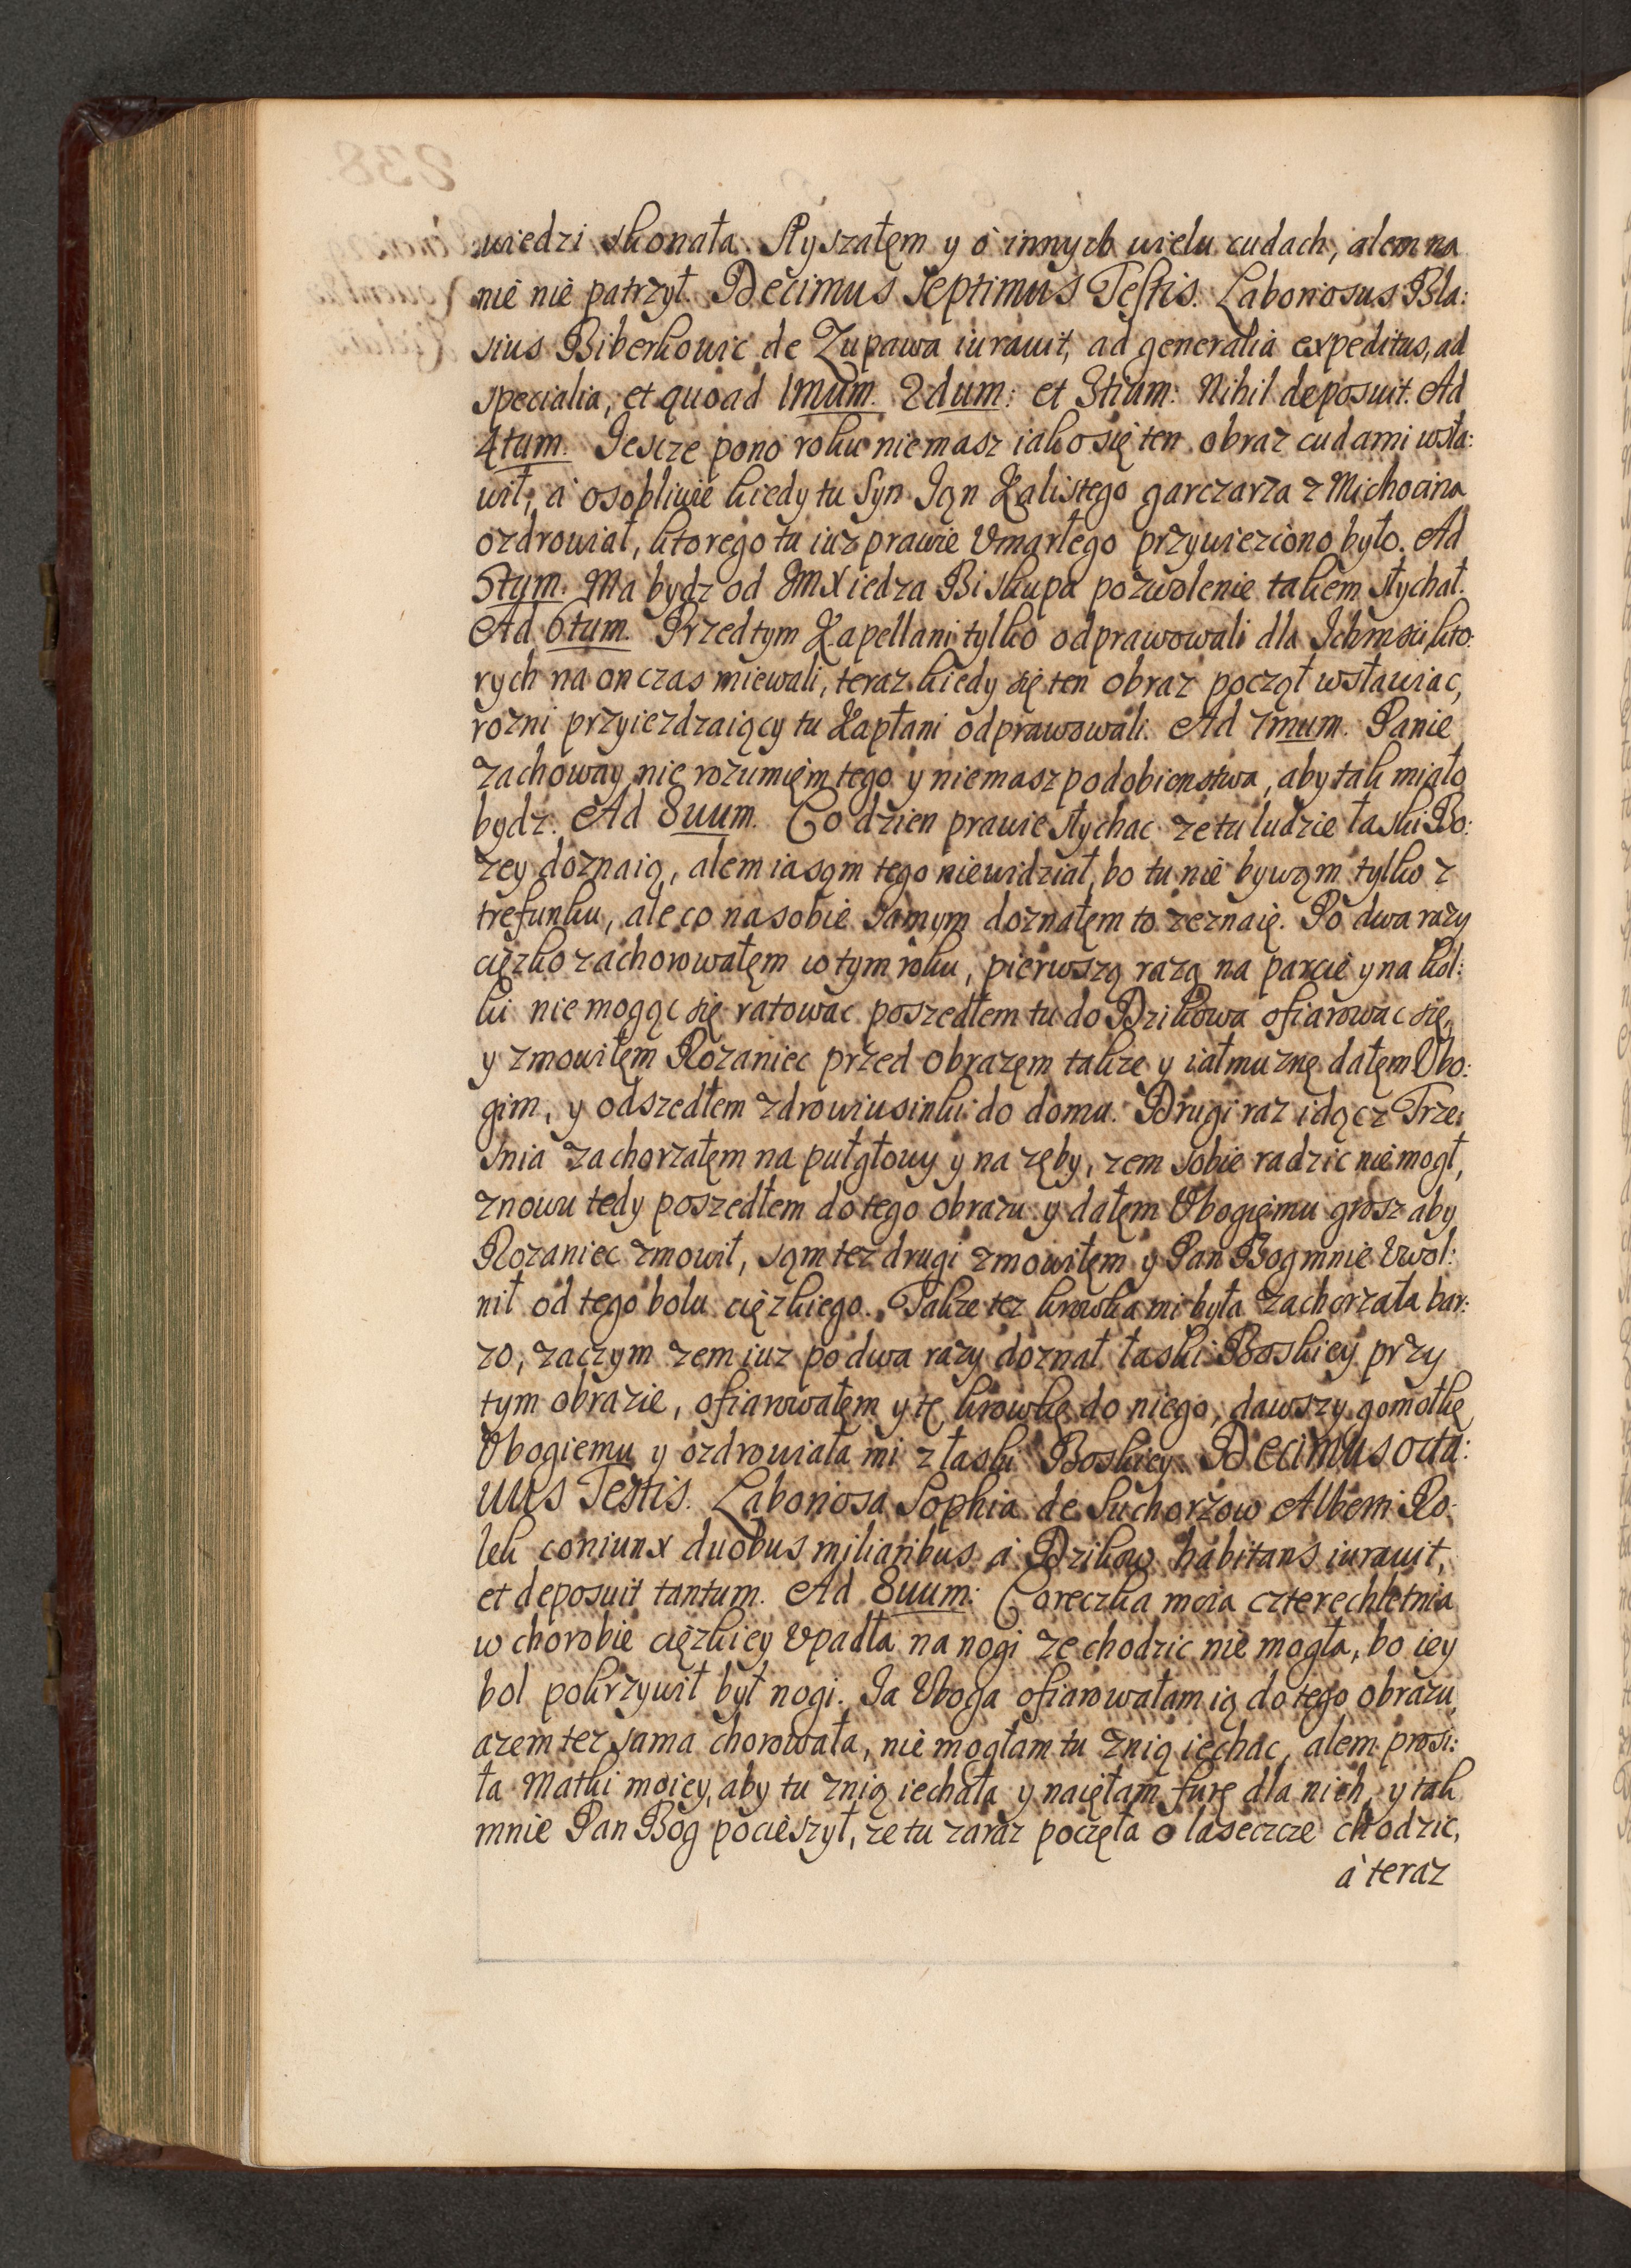 wiedzi skonała. Słyszałęm y ò innych wielu cudach, alem na
nie nie patrzył. Decimus Septimus Testis. Laboriosus Bla:
sius Biberkowic de Zupawa iurauit, ad generalia expeditus, ad
specialia, et quoad 1mum. 2dum: et 3tium: Nihil deposuit. Ad
4tum. Jescze pono roku niemasz iako się ten obraz cudami wsła:
wił, à osobliwie kiedy tu Syn Jąn Kalistego garczarza z Michocina
ozdrowiał, ktorego tu iuz prawie Vmarłego przywieziono było. Ad
5tum. Ma bydz od JMXiedza Biskupa pozwolenie takiem słychał.
Ad 6tum. Przedtym Kapellani tylko odprawowali dla Ichmsci, kto:
rych na on czas miewali, teraz kiedy się ten obraz począł wsławiac,
rozni przyiezdzaiący tu Kapłani odprawowali. Ad 7mum. Panie
zachoway nie rozumięm tego y niemasz podobienstwa, aby tak miało
bydz. Ad 8uum. Co dzien prawie słychac ze tu ludzie łaski Bo:
zey doznaią, alem ia sąm tego niewidział, bo tu nie bywąm tylko z
trefunku, ale co na sobie samym doznałęm to zeznaię. Po dwa razy
cięzko zachorowałęm w tym roku, pierwszą razą na parcie y na kol:
ki nie mogąc się ratowac poszedłem tu do Dzikowa ofiarowac się,
y zmowiłęm Rozaniec przed obrazęm takze y iałmuznę dałęm Vbo:
gim, y odszedłem zdrowiusinki do domu. Drugi raz idąc z Trze:
snia zachorzałęm na puł głowy y na zęby, zem sobie radzic nie mogł,
znowu tedy poszedłem do tego obrazu y dałęm Vbogięmu grosz aby
Rozaniec zmowił, sąm tez drugi zmowiłęm y Pan Bog mnie Vwol:
nił od tego bolu cięzkiego. Takze tez krowka mi była zachorzała bar:
zo, zaczym zem iuz po dwa razy doznał łaski Boskiey przy
tym obrazie, ofiarowałęm y tę krowkę do niego, dawszy gomołkę
Vbogiemu y ozdrowiała mi z łaski Boskiey. Decimus octa:
uus Testis. Laboriosa Sophia de Suchorzow Alberti Ro:
lek coniunx duobus miliaribus à Dzikow habitans iurauit,
et deposuit tantum. Ad 8uum: Coreczka moia czterechletnia
w chorobie cięzkiey Vpadła na nogi ze chodzic nie mogła, bo iey
bol pokrzywił był nogi. Ja Vboga ofiarowałam ią do tego obrazu,
azem tez sama chorowała, nie mogłam tu znią iechac, alem prosi:
ła Matki moiey, aby tu znią iechała y naięłam furę dla nich, y tak
mnie Pan Bog pocieszył, ze tu zaraz poczęła o laseczce chodzic,
à teraz